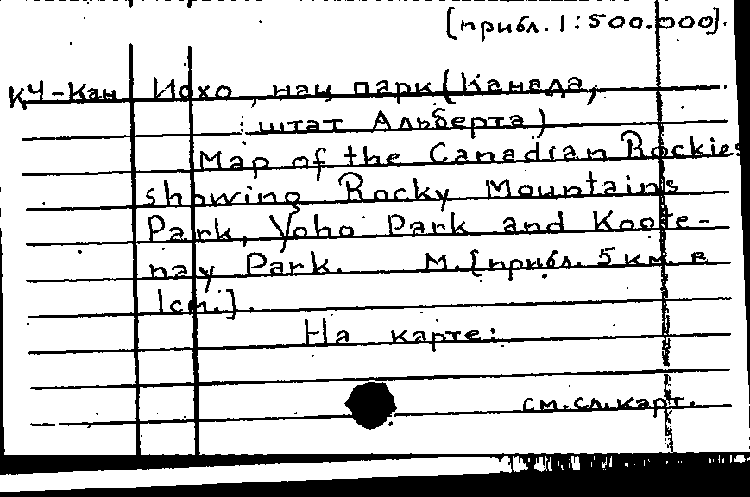 [прибл. 1:500.000].
КЧ-Кан Иохо, нац парк (Канада,
штат Альберта)
Map of the Canadian Rockies
showing Rocky Mountains
Park, Yoho Park and Koote-
nay Park. М. [прибл. 5 км. в
1 см.].
На карте:
см. сл. карт.